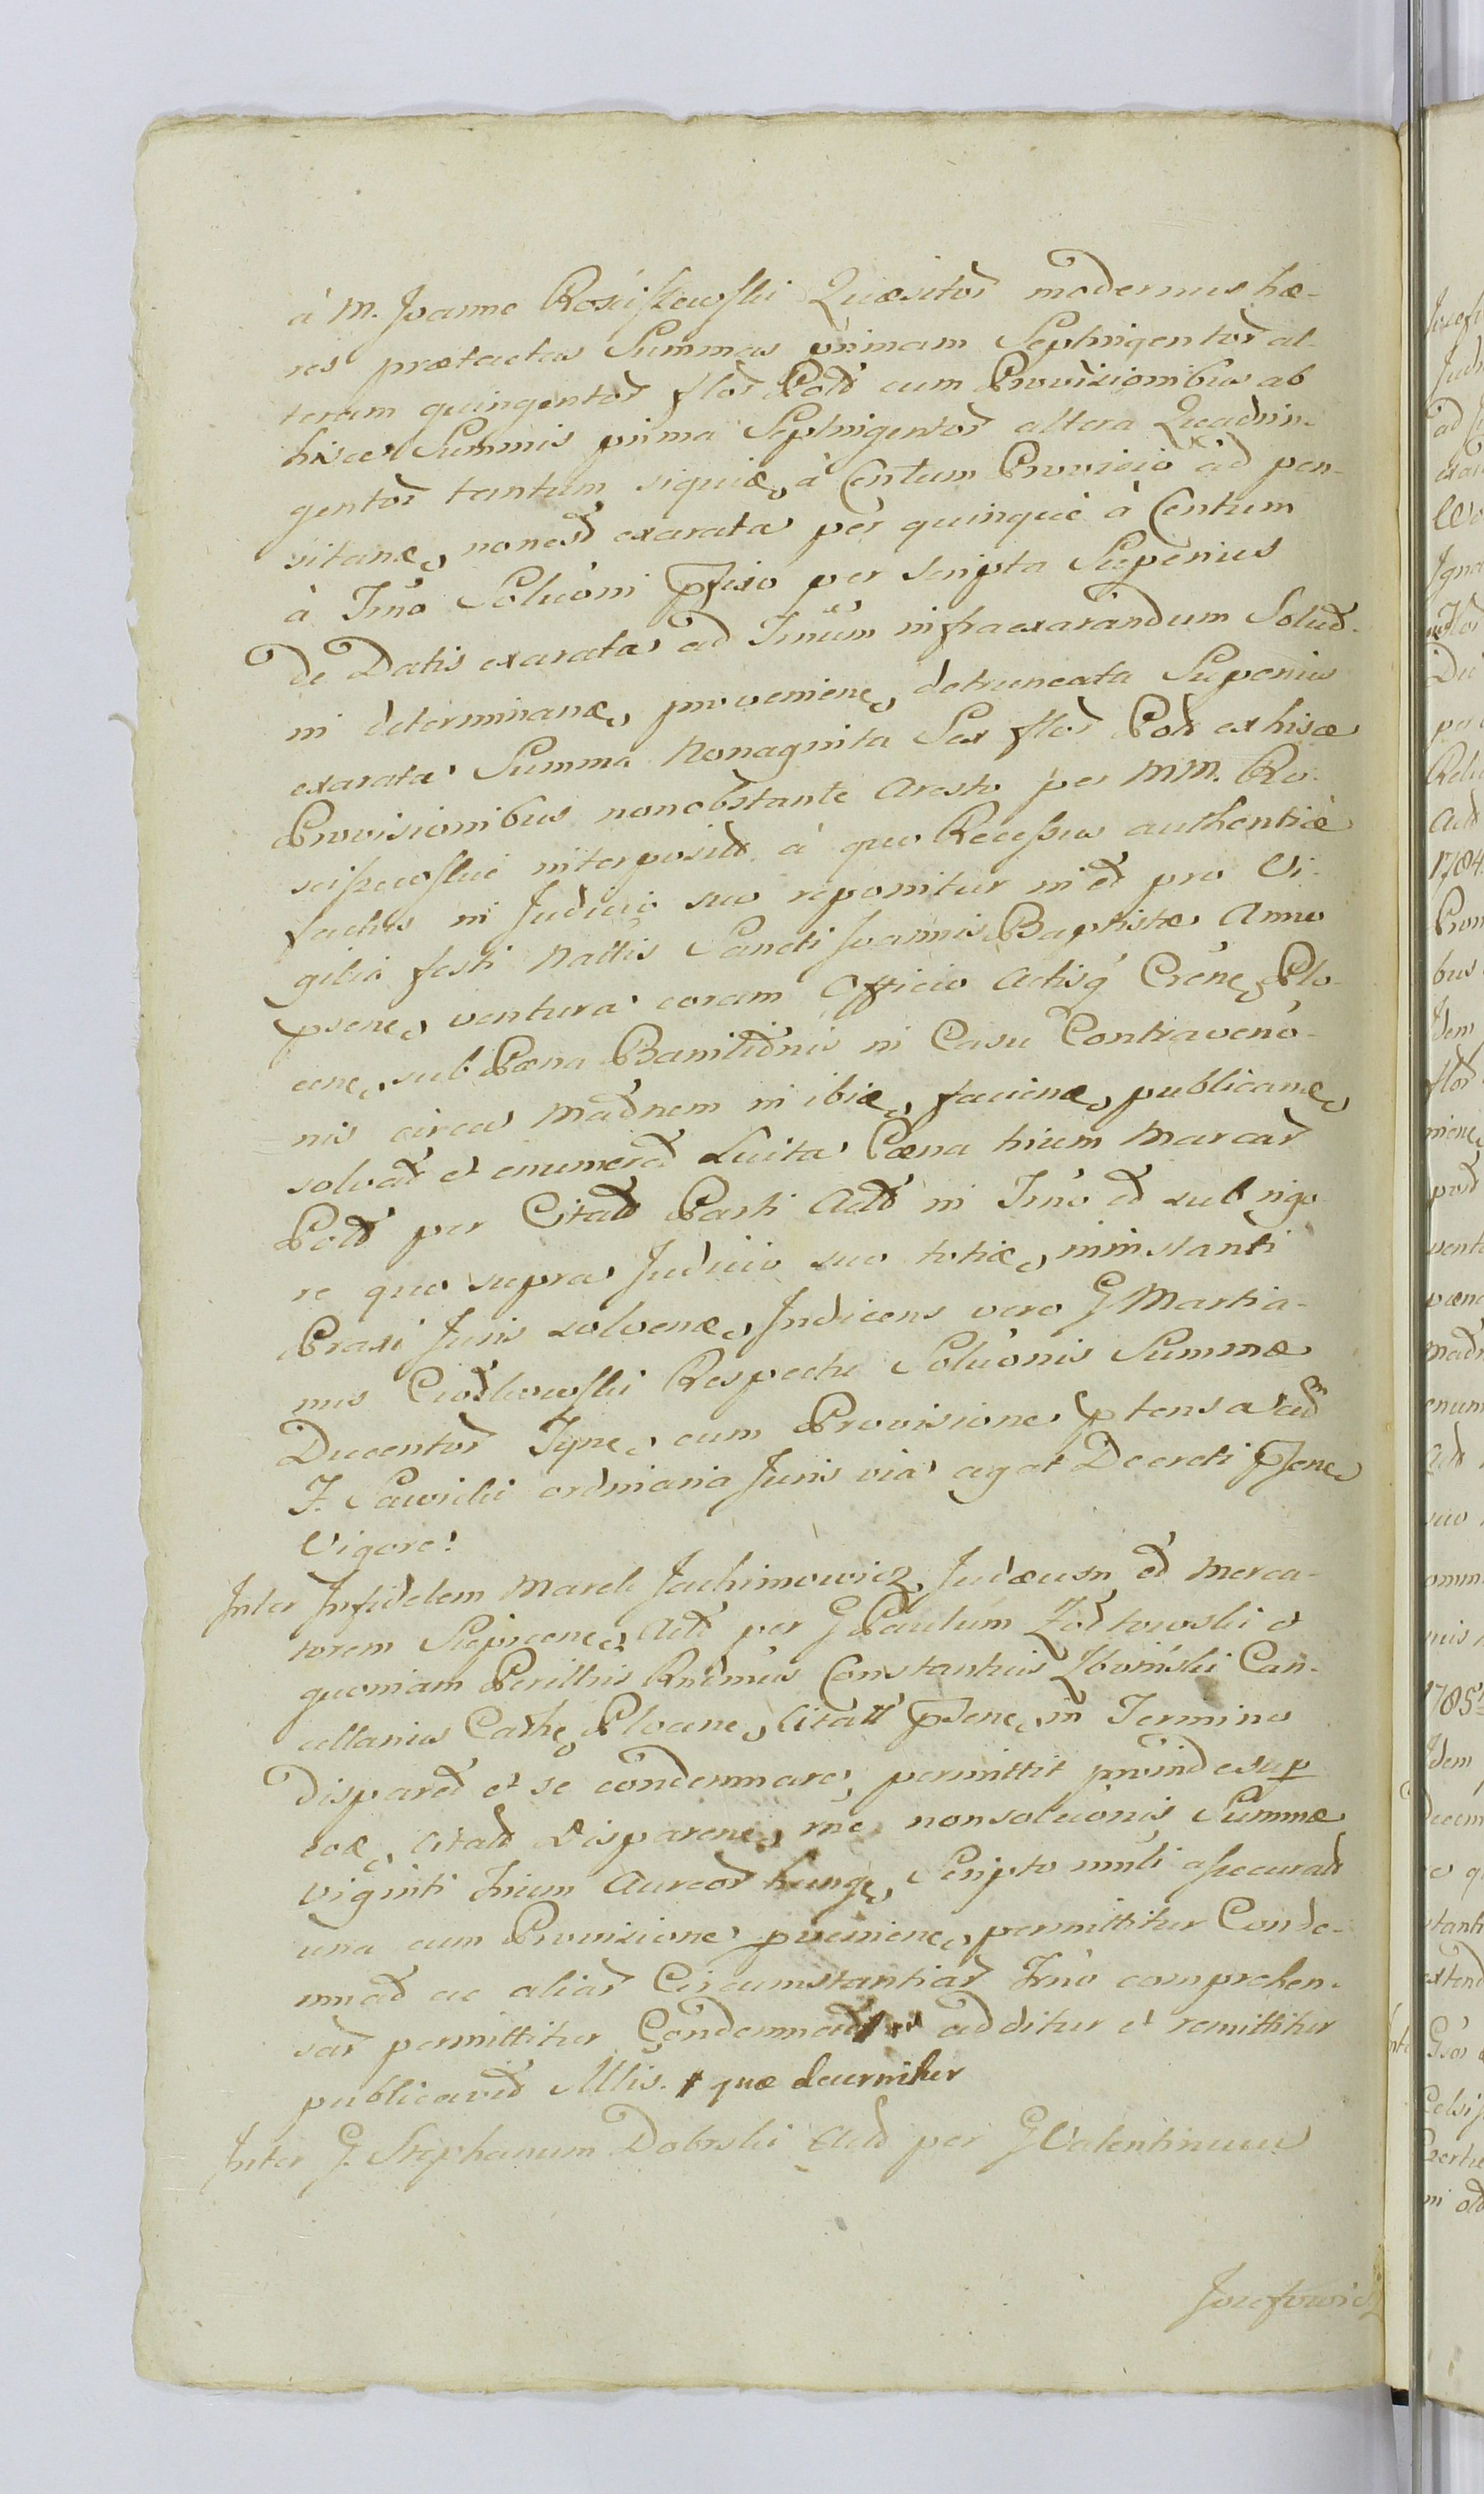 à M. Joanne Rosciszewski Quæsitor̃ modernus hæ-
res prætactas Summas primam Septingentor̃ al-
teram quingentor̃ flor̃ Pold̃ cum Provisionibus ab
hisce Summis prima Septingentor̃ altera Quadrin-
gentor̃ tantum siquidæ à Centum Provisio ad pen-
sitanæ nonest exarata per quinque à Centum
à Tm̃o Soluõni pfixo per scripta Superius
De Datis exarata ad Tm̃um infraexarandum Solud̃
in determinanæ proveniene, detruncata Superius
exarata Summa Nonaginta Sex flor̃ Pold̃ ex hisce
Provisionibus nonobstante Aresto per MM. Ro-
sciszewskie interposit̃ à quo Recessus authentice
factus in Judicio suo reponitur in et pro Vi-
gilia festi Nattis Sancti Joannis Baptistæ Anno
psene, ventura coram Officio Actisq́ Crẽne, Plo-
cene, sub Pæna Banitiõnis in Casu Contravenõ-
nis circa Mad̃nem in ibiæ, faciene, publicanæ
solvat̃ et enumerat̃ Luita Pæna trium Marcar̃
Pold̃ per Citat̃ Parti Act̃ in Tm̃o et sub rigo-
re quo supra Judicio suo totiæ, ininstanti
Praxi Juris solvenæ, Judicens vero G Martia-
nus Ciołkowski Respectu Soluõnis Summæ
Ducentor̃ Tyne, cum Provisione ptensa ad
F. Sawicki ordinaria Juris via agat Decreti psene
Vigore.
Inter Infidelem Marek Jachimowicz Judæum et Merca-
torem Sieprcene, Act̃ per G Paulum Żołtowski et
quoniam Perillris Rndmus Constantius Zboiński Can-
cellarius Cathe, Plocene, Citatt̃ psene, in Termino
Disparet̃ et se condemnare permittit proinde sup
eoæ, Citat̃ Disparene, rñe nonsoluõnis Summæ
Viginti trium Aureor̃ hunge, Scripto muli assecurat̃
una cum Provisione proviniene, permittitur Conde-
mnat̃ ac aliar̃ Circumstantiar̃ Tm̃o comprehen-
sar̃ permittitur Condemnat̃ # additur et remittitur
publicavit̃ Mlis. # quæ decernitur
Inter G. Stephanum Dobrski Act̃ per G Valentinum
Jozefowicz